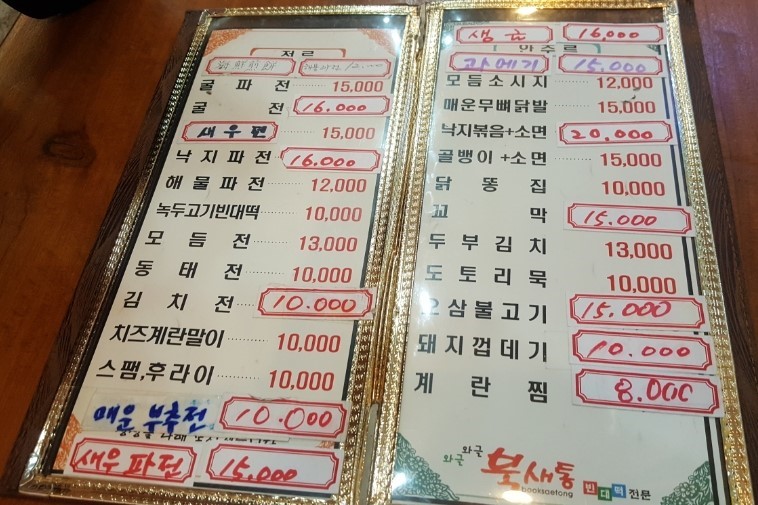 전류
굴파전 15,000
굴전 16.000
새우펜 15,000
낙지파전 16.000
해물파전 12,000
녹두고기빈대떡 10,000
모듬전 13,000
동태전 10,000
김치전 10.000
치즈계란말이 10,000
스팸,후라이 10,000
매운 부추전 10.000
새우파전 15.000
생굴 16,000
안주류
과메기 15,000
모듬소시지 12,000
매운무뼈닭발 15,000
낙지볶음+소면 20,000
골뱅이+소면 15,000
닭똥집 10,000
꼬막 15.000
두부김치 13,000
도토리묵 10,000
오삼불고기 15,000
돼지껍데기 10.000
계란찜 8.000
와글 와글 북새통
booksaetong
빈대떡 전문